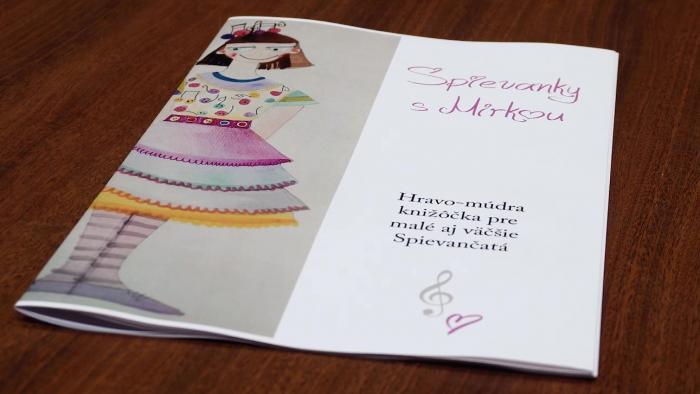 Spievanky
s Mirkou
Hravo-múdra
knižôčka pre
malé aj väčšie
Spievančatá